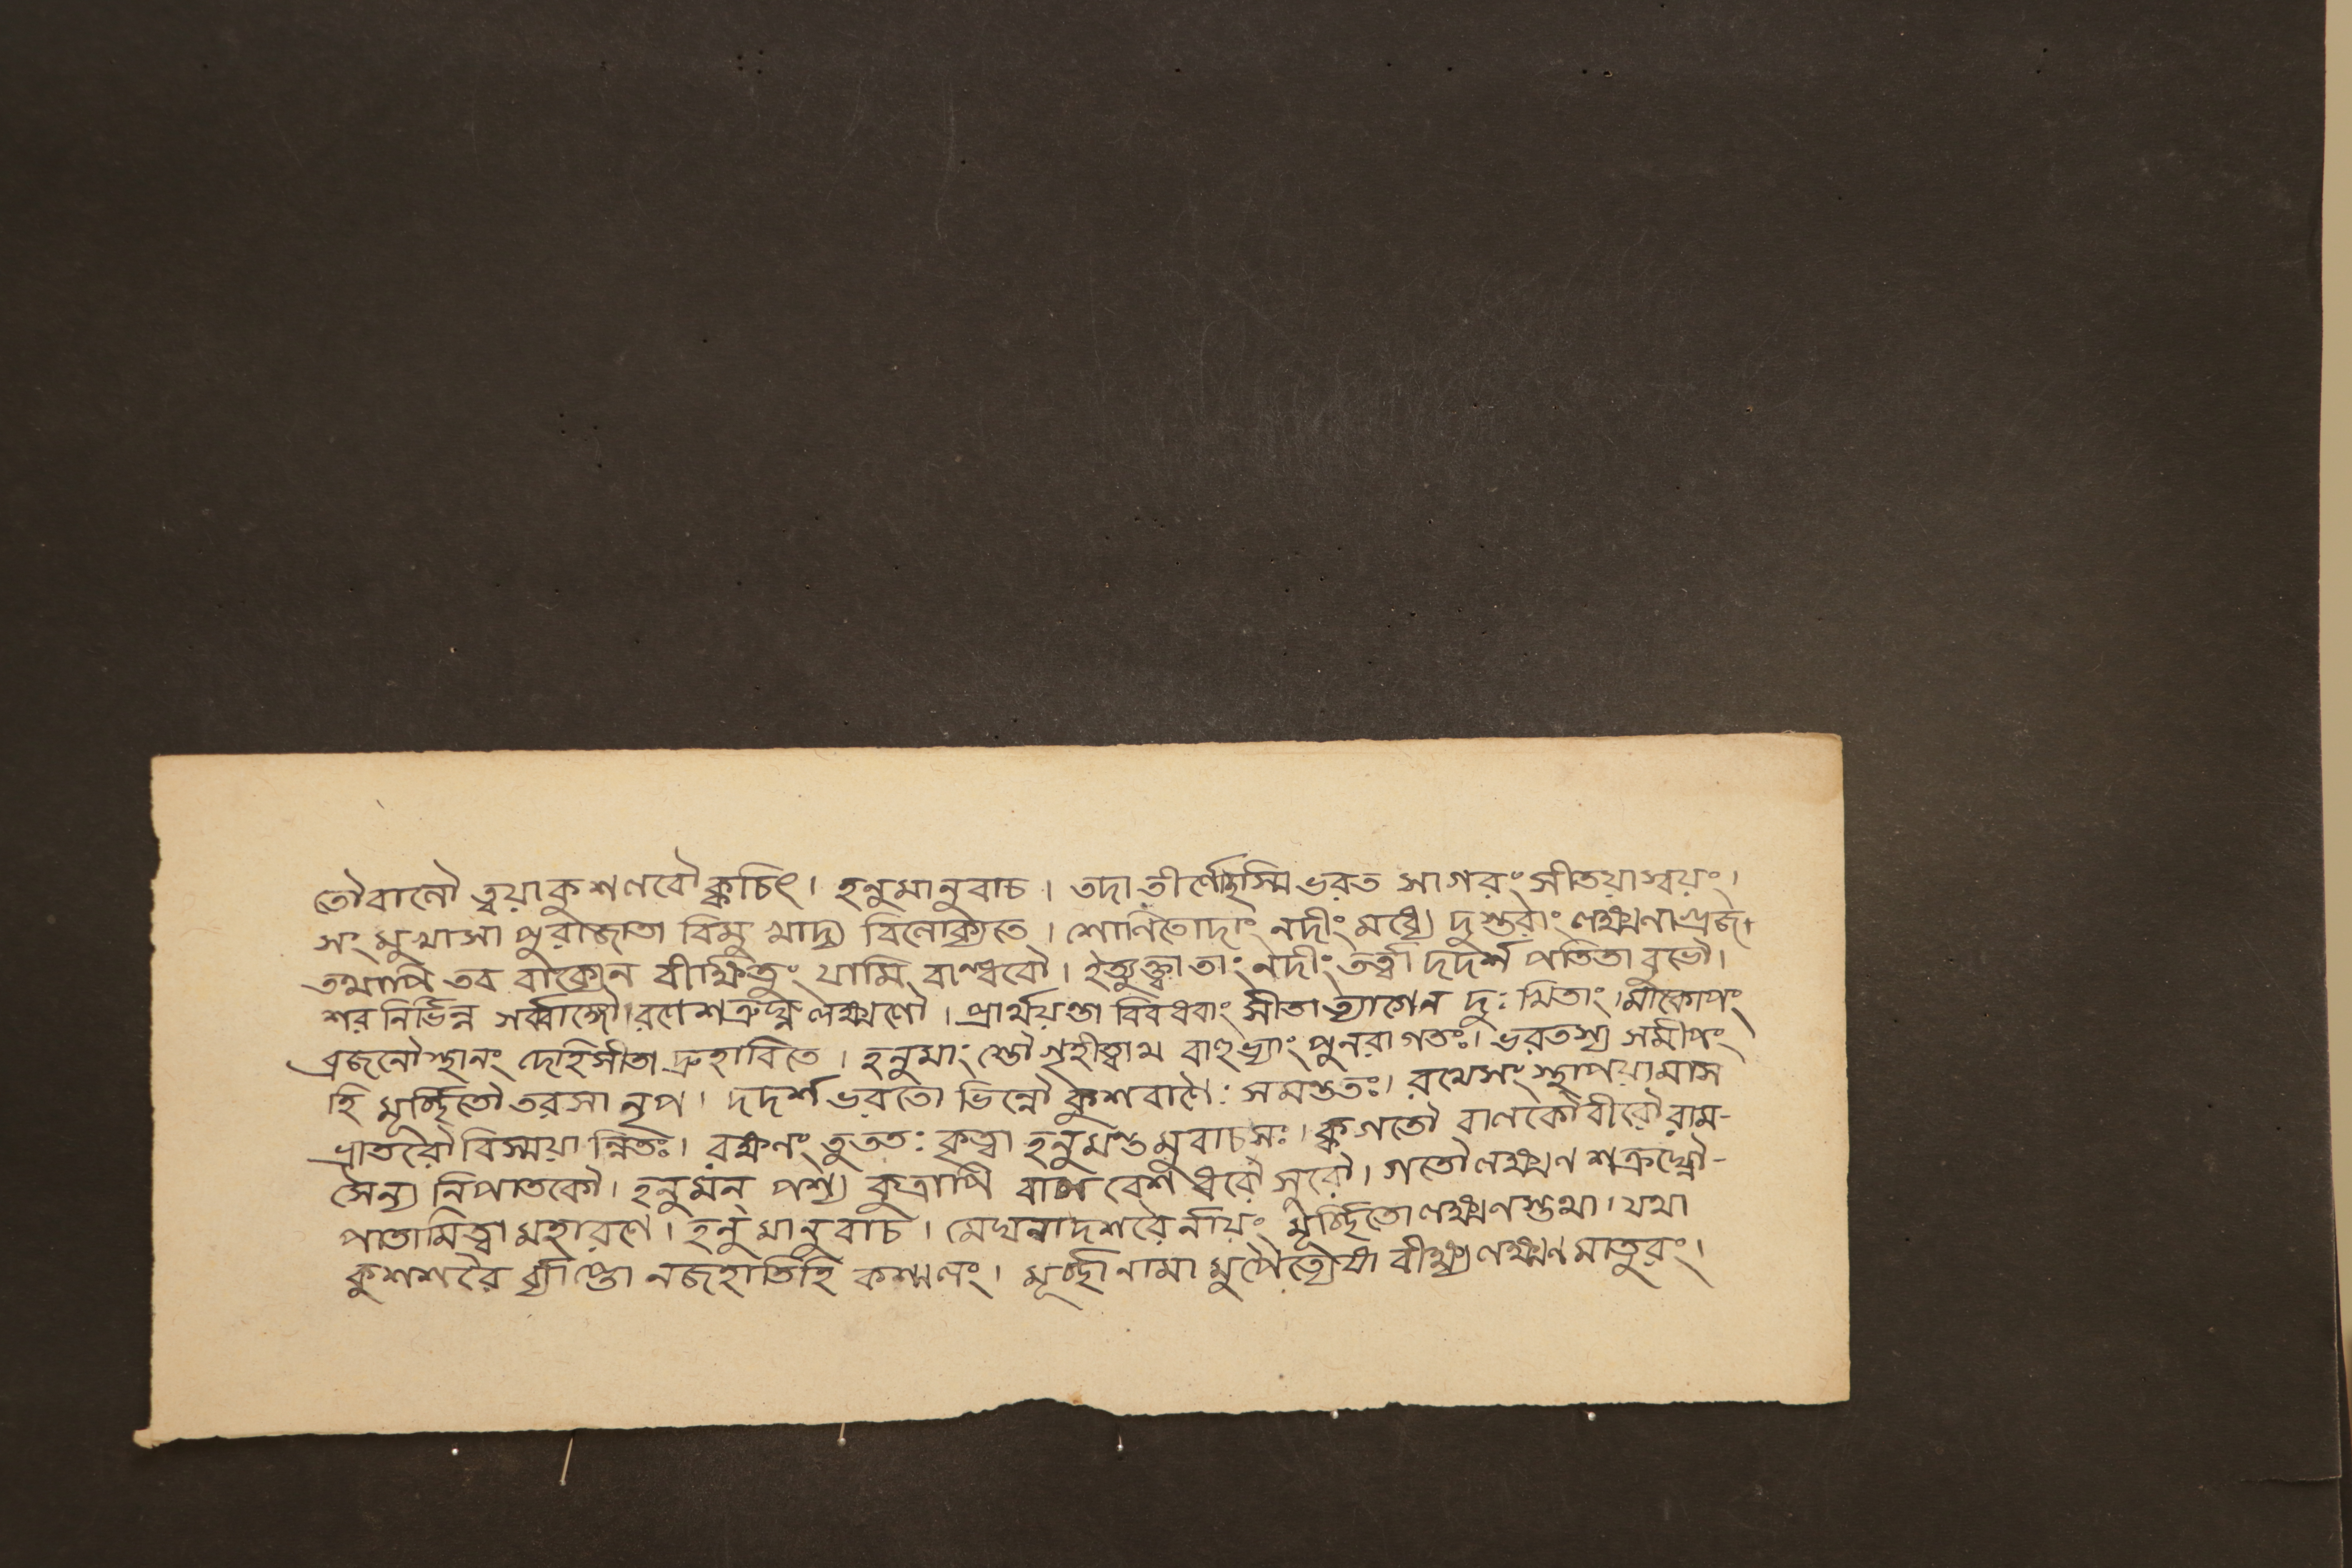 তৌবালৌ ত্বয়াকুশলবৌ ক্বচিৎ। হনুমানুবাচ। তদাতীর্ণোহস্মি ভরত সাগরং সীতয়াস্বয়ং।
সংমুখাসা পুরাজাতা বিমুখাদ্য বিলোক্যতে। শোণিতোদাং নদীং মধ্যে দুস্তরাং লক্ষ্মণাগ্রজ।
তথাপি তব বাক্যেন বীক্ষিতুং যামি বান্ধবৌ। ইত্যুক্ত্বা তাং নদীং তর্ত্বা দদর্শ পতিতাবুভৌ।
শর নির্ভিন্ন সর্ব্বাঙ্গৌ রণে শত্রুঘ্ন লক্ষ্মণৌ। প্রার্থয়ন্তা বিবধরাং সীতা ত্যাগেন দুঃখিতাং। মাকোপং
ব্রজনৌ স্থানং দেহিসীতা দ্রুহাবিতে। হনুমাংস্তৌ গৃহীত্বাথ বাহুভ্যাং পুনরাগতঃ। ভরতস্য সমীপং
হি মূর্চ্ছিতৌ তরসা নৃপ। দদর্শ ভরতো ভিন্নৌ কুশবাণৈঃ সমন্ততঃ। রথেসংস্থাপয়ামাস
ভ্রাতরৌ বিস্ময়ান্বিতঃ। রক্ষণং তুততঃ কৃত্বা হনুমন্তমুবাচসঃ। ক্বগতৌ বালকৌ বীরৌ রাম-
সৈন্য নিপাতকৌ। হনুমন্ পশ্য কুত্রাপি বাল বেশ ধরৌ সুরৌ। গতৌ লক্ষ্মণ শত্রুঘ্নৌ-
পাতামিত্বা মহারণে। হনুমানুবাচ। মেঘনাদশরৈর্নায়ং মূর্চ্ছিতো লক্ষ্মণস্তথা। যথা
কুশশরৈ র্ব্যাপ্তো নজহাতিহি কশ্মলং। মূর্চ্ছানামা মুপৈত্যেষা বীক্ষ্য লক্ষ্মণ মাতুরং।